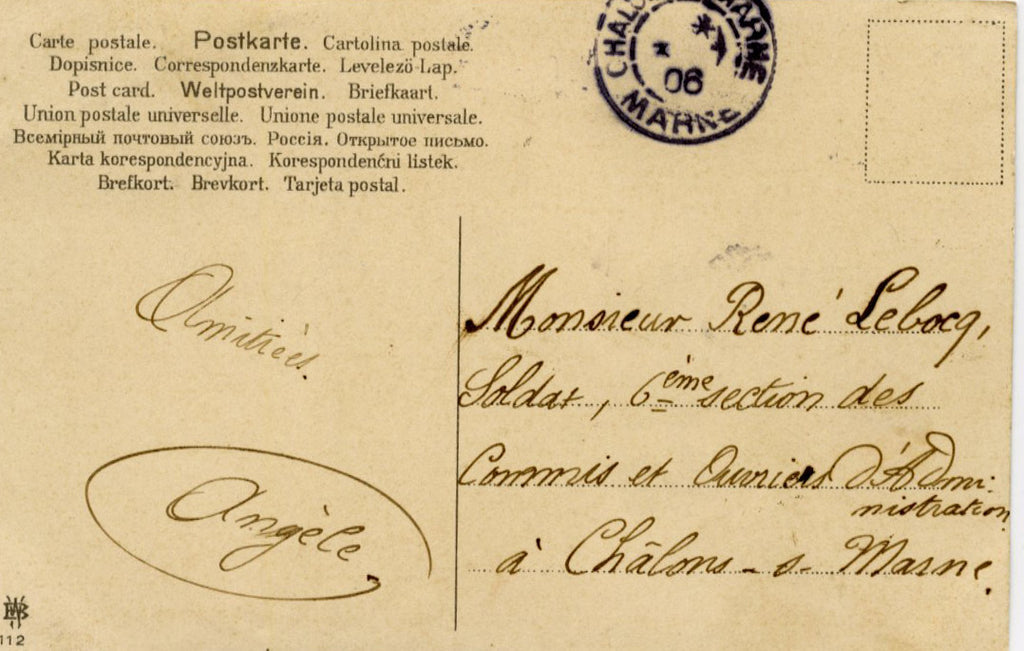 Carte postale. Postkarte. Cartolina postale.
Dopisnice. Correspondenzkarte. Levelező-Lap.
Post card. Weltpostverein. Briefkaart.
Union postale universelle. Unione postale universale.
Всемірный почтовый союзъ. Россія. Открытое письмо.
Karta korespondencyjna. Korespondenčni listek.
Brefkort. Brevkort. Tarjeta postal.
MARNE
06
MARNE
Amitiées.
Angèle
Monsieur René Lebocq,
Soldat, 6ème section des
Commis et Ouvriers d'Admi-
nistration
à Châlons-s-Marne.
112